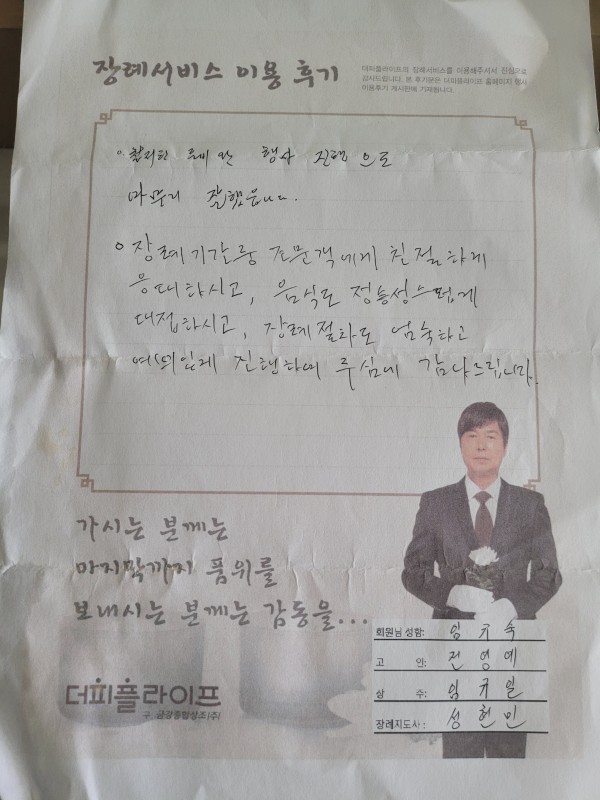 장례서비스 이용 후기
더피플라이프의 장례서비스를 이용해주셔서 진심으로
감사드립니다. 본 후기문은 더피플라이프 홈페이지 행사
이용후기 게시판에 기재됩니다.
준비와 행사 진행으로
마무리 잘했읍니다.
장례기간중 조문객에게 친절하게
응대하시고, 음식도 정성스럽게
대접하시고, 장례절차도 엄숙하고
예의있게 진행하여 주심에 감사드립니다.
가시는 분께는
마지막까지 품위를
보내시는 분께는 감동을...
회원님 성함: 임규숙
고 인: 전영예
상 주: 임규일
장례지도사: 성현민
더피플라이프
구. 금강종합상조(주)